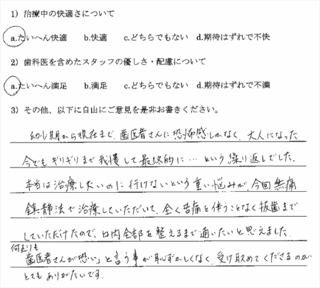 1) 治療中の快適さについて
a.たいへん快適 b.快適 c.どちらでもない d.期待はずれで不快
2) 歯科医を含めたスタッフの優しさ・配慮について
a.たいへん満足 b.満足 c.どちらでもない d.期待はずれで不満
3) その他、以下に自由にご意見を是非お書きください。
幼少期から現在まで、歯医者さんに恐怖感しかなく、大人になった
今でもギリギリまで我慢して最終的に…という繰り返しでした。
本当は治療したいのに行けないという重い悩みが、今回無痛
鎮静法で治療していただいて、全く苦痛を伴うことなく抜歯まで
していただけたので、口内全部を整えるまで通いたいと思えました。
何よりも
「歯医者さんが怖い」と言う事が恥ずかしくなく受け止めてくださるのが
とてもありがたいです。